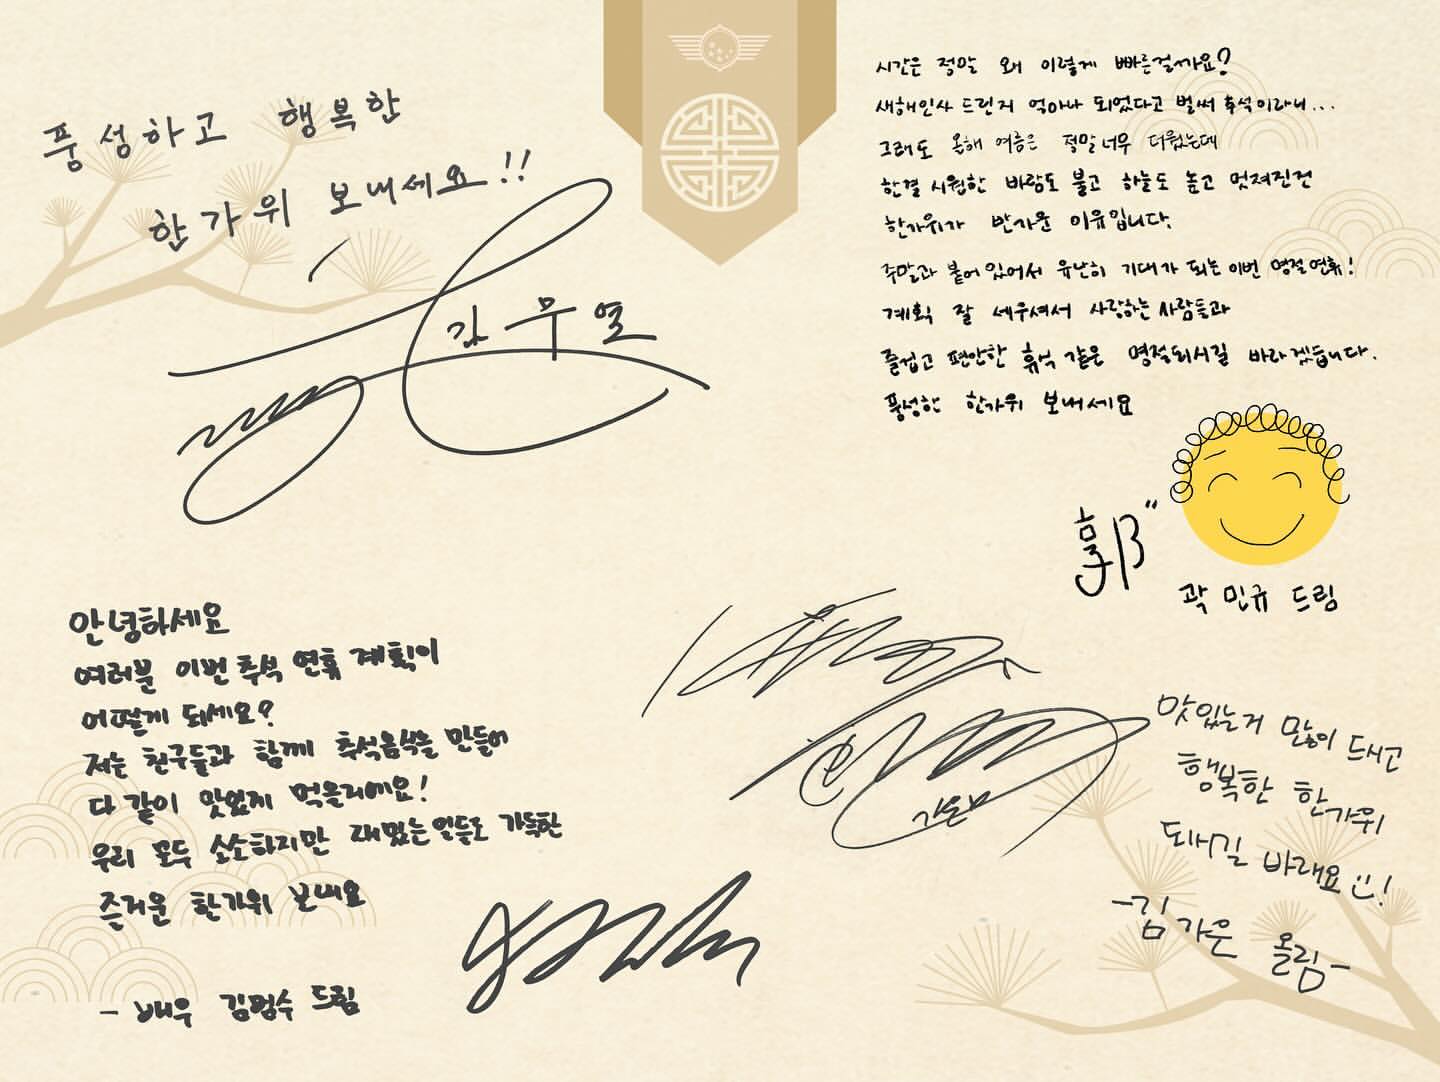 풍성하고 행복한
한가위 보내세요!!
김무열
시간은 정말 왜 이렇게 빠른걸까요?
새해인사 드린지 얼마나 되었다고 벌써 추석이라니...
그래도 올해 여름은 정말 너무 더웠는데
한결 시원한 바람도 불고 하늘도 높고 멋져진건
한가위가 반가운 이유입니다.
주말과 붙어있어서 유난히 기대가 되는 이번 명절연휴!
계획 잘 세우셔서 사랑하는 사람들과
즐겁고 편안한 휴식 같은 명절되시길 바라겠듭니다.
풍성한 한가위 보내세요
郭"
곽민규 드림
안녕하세요
여러분 이번 추석 연휴 계획이
어떻게 되세요?
저는 친구들과 함께 추석음식을 만들어
다 같이 맛있게 먹을거에요!
우리 모두 소소하지만 재밌는 일들로 가득한
즐거운 한가위 보내요
- 배우 김범수 드림
맛있는거 많이 드시고
행복한 한가위
되시길 바래요 !
-김가은 올림-